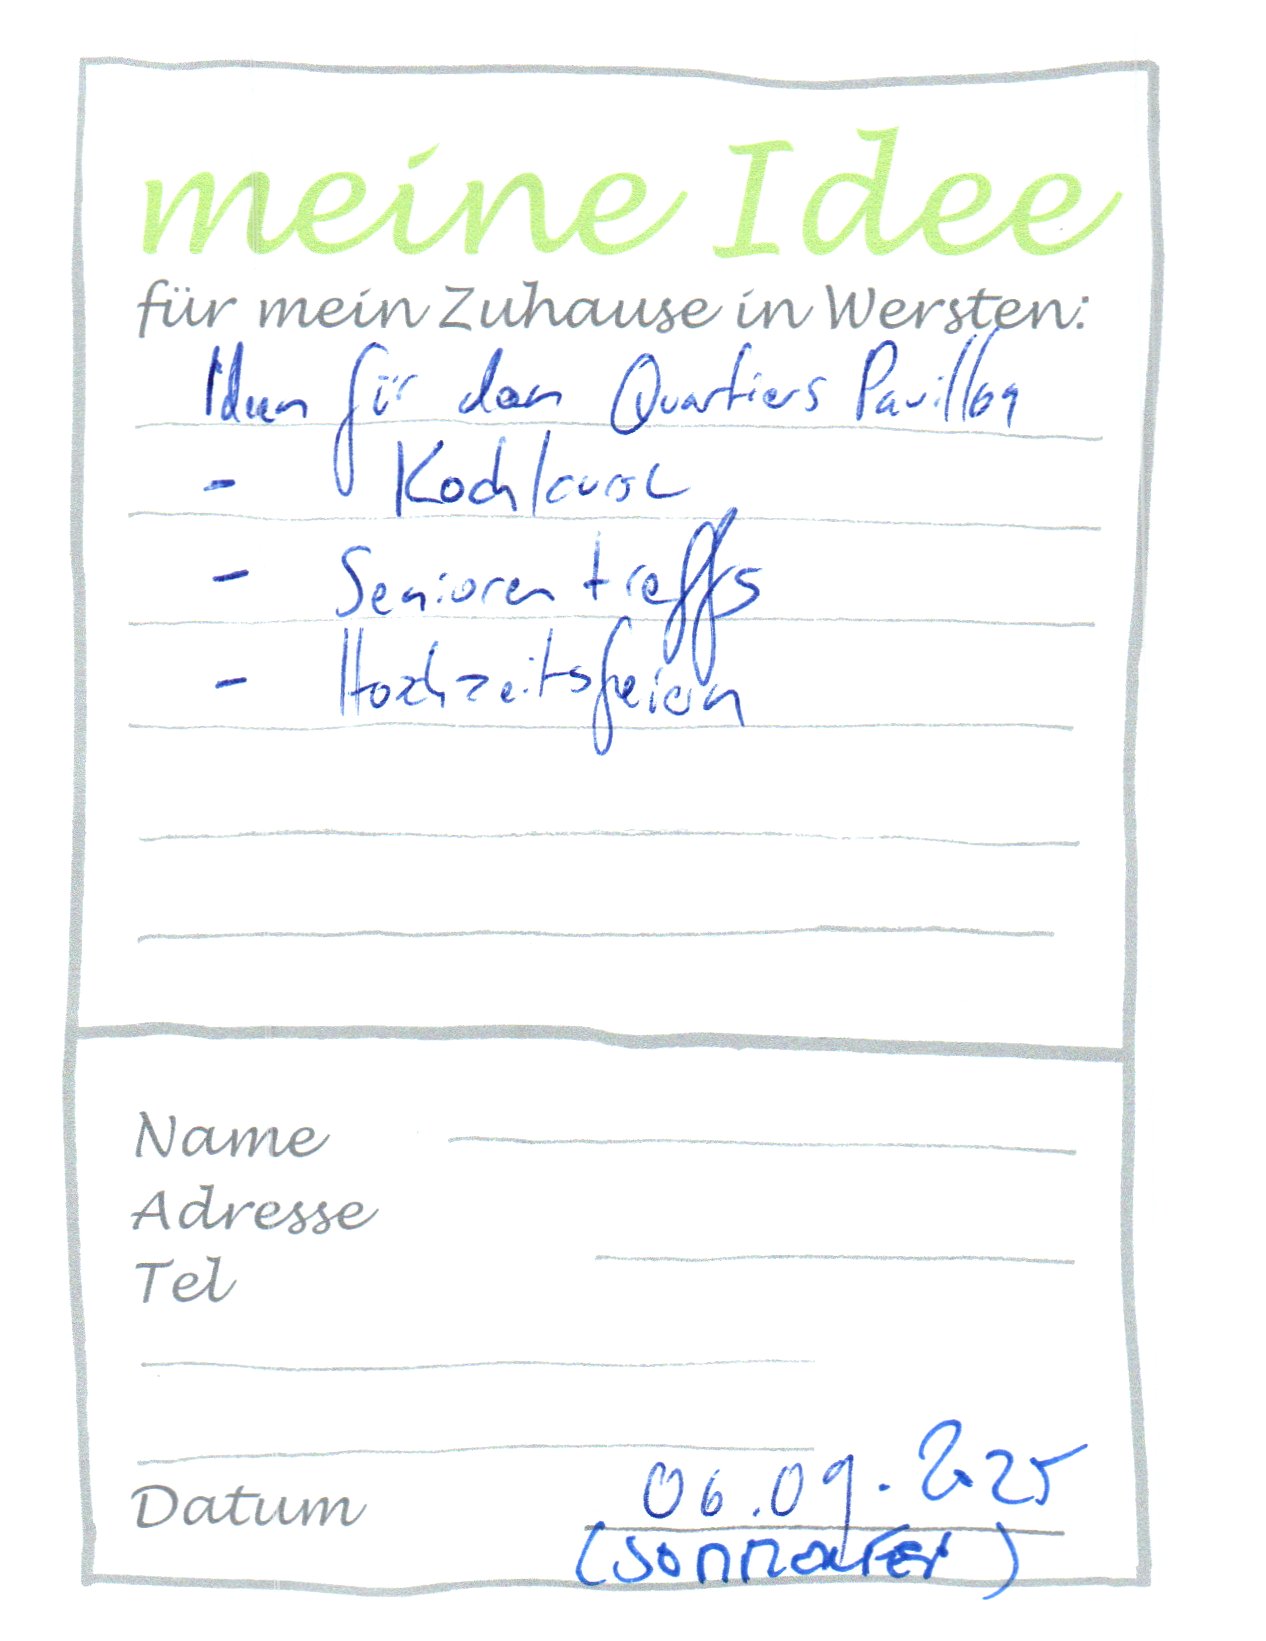 meine Idee
für mein Zuhause in Wersten:
Ideen für den Quartiers Pavillon
- Kochkurse
- Seniorentreffs
- Hochzeitsfeiern
Name
Adresse
Tel
Datum 06.09.2025
(SOMMERFEST)